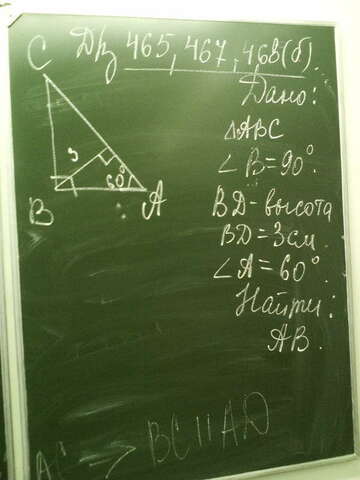 Д/з 465, 467, 468(б).
Дано:
△ABC
∠B=90°.
BD-высота
BD=3см.
∠A=60°.
Найти:
AB.
C
3
60°
B
A
BC || AD